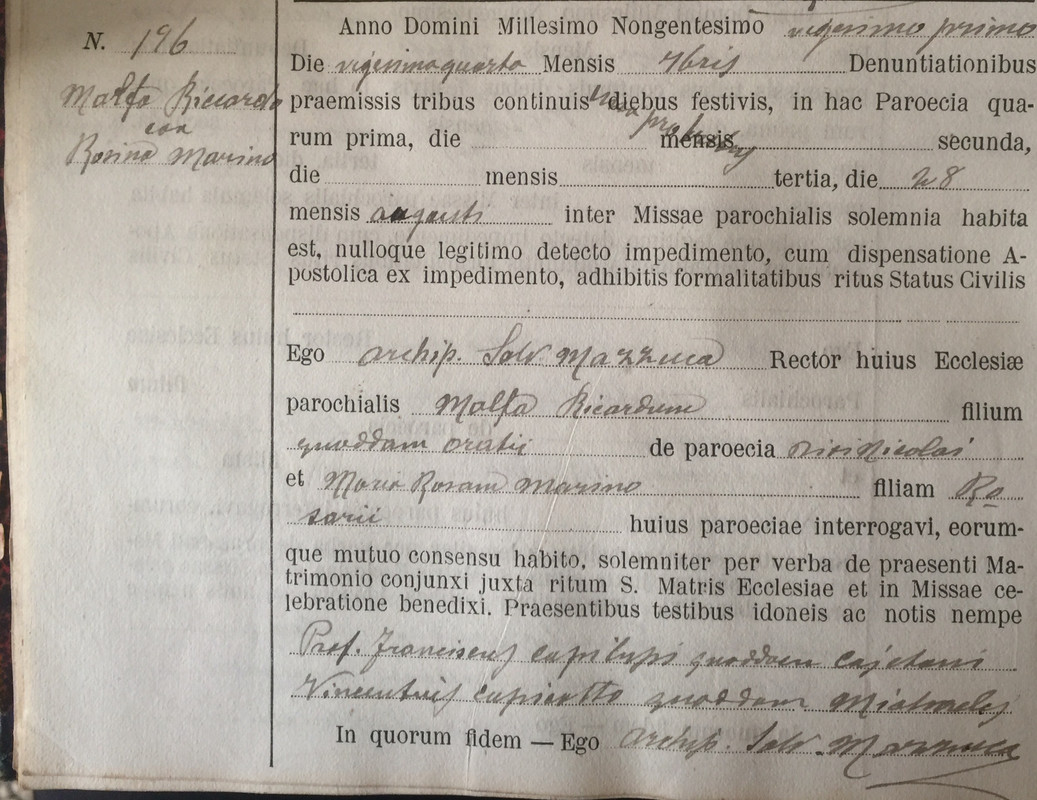 N. 196
Malfa Riccardo
con
Rosina Marino
Anno Domini Millesimo Nongentesimo vigesimo primo
Die vigesimaquarta Mensis 7bris Denuntiationibus
praemissis tribus continuis diebus festivis, in hac Paroecia qua-
rum prima, die mensis secunda,
die mensis tertia, die 28
mensis augusti inter Missae parochialis solemnia habita
est, nulloque legitimo detecto impedimento, cum dispensatione A-
postolica ex impedimento, adhibitis formalitatibus ritus Status Civilis
Ego Archip. Salv Mazzuca Rector huius Ecclesiæ
parochialis Malfa Ricardum filium
quoddam Oratii de paroecia Nicolai
et Maria Rosam Marino filiam Ro
sarii huius paroeciae interrogavi, eorum-
que mutuo consensu habito, solemniter per verba de praesenti Ma-
trimonio conjunxi juxta ritum S. Matris Ecclesiae et in Missae ce-
lebratione benedixi. Praesentibus testibus idoneis ac notis nempe
Prof. Franciscus Capilupi quoddam Cajetani
Vincentius quoddam Michaelis
In quorum fidem — Ego Archip. Salv. Mazzuca